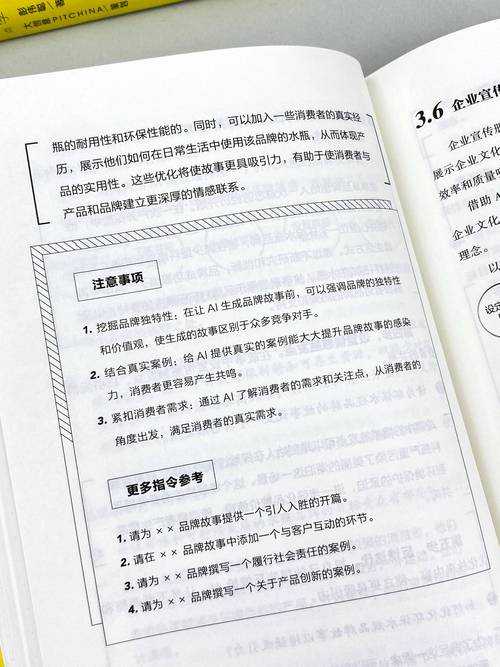 大创意PITCHINA
瓶的耐用性和环保性能的。同时，可以加入一些消费者的真实经
历，展示他们如何在日常生活中使用该品牌的水瓶，从而体现产
品的实用性。这些优化将使故事更具吸引力，有助于使消费者与
产品和品牌建立更深厚的情感联系。
注意事项
1. 挖掘品牌独特性：在让 AI 生成品牌故事前，可以强调品牌的独特性
和价值观，使生成的故事区别于众多竞争对手。
2. 结合真实案例：给 AI 提供真实的案例能大大提升品牌故事的感染
力，消费者更容易产生共鸣。
3. 紧扣消费者需求：通过 AI 了解消费者的需求和关注点，从消费者的
角度出发，满足消费者的真实需求。
更多指令参考
1. 请为 ×× 品牌故事提供一个引人入胜的开篇。
2. 请在 ×× 品牌故事中添加一个与客户互动的环节。
3. 请为 ×× 品牌撰写一个履行社会责任的案例。
4. 请为 ×× 品牌撰写一个关于产品创新的案例。
3.6 企业宣传
企业宣传
展示企业文化
效率和质量
借助 A
企业文化
理念。
以
设定